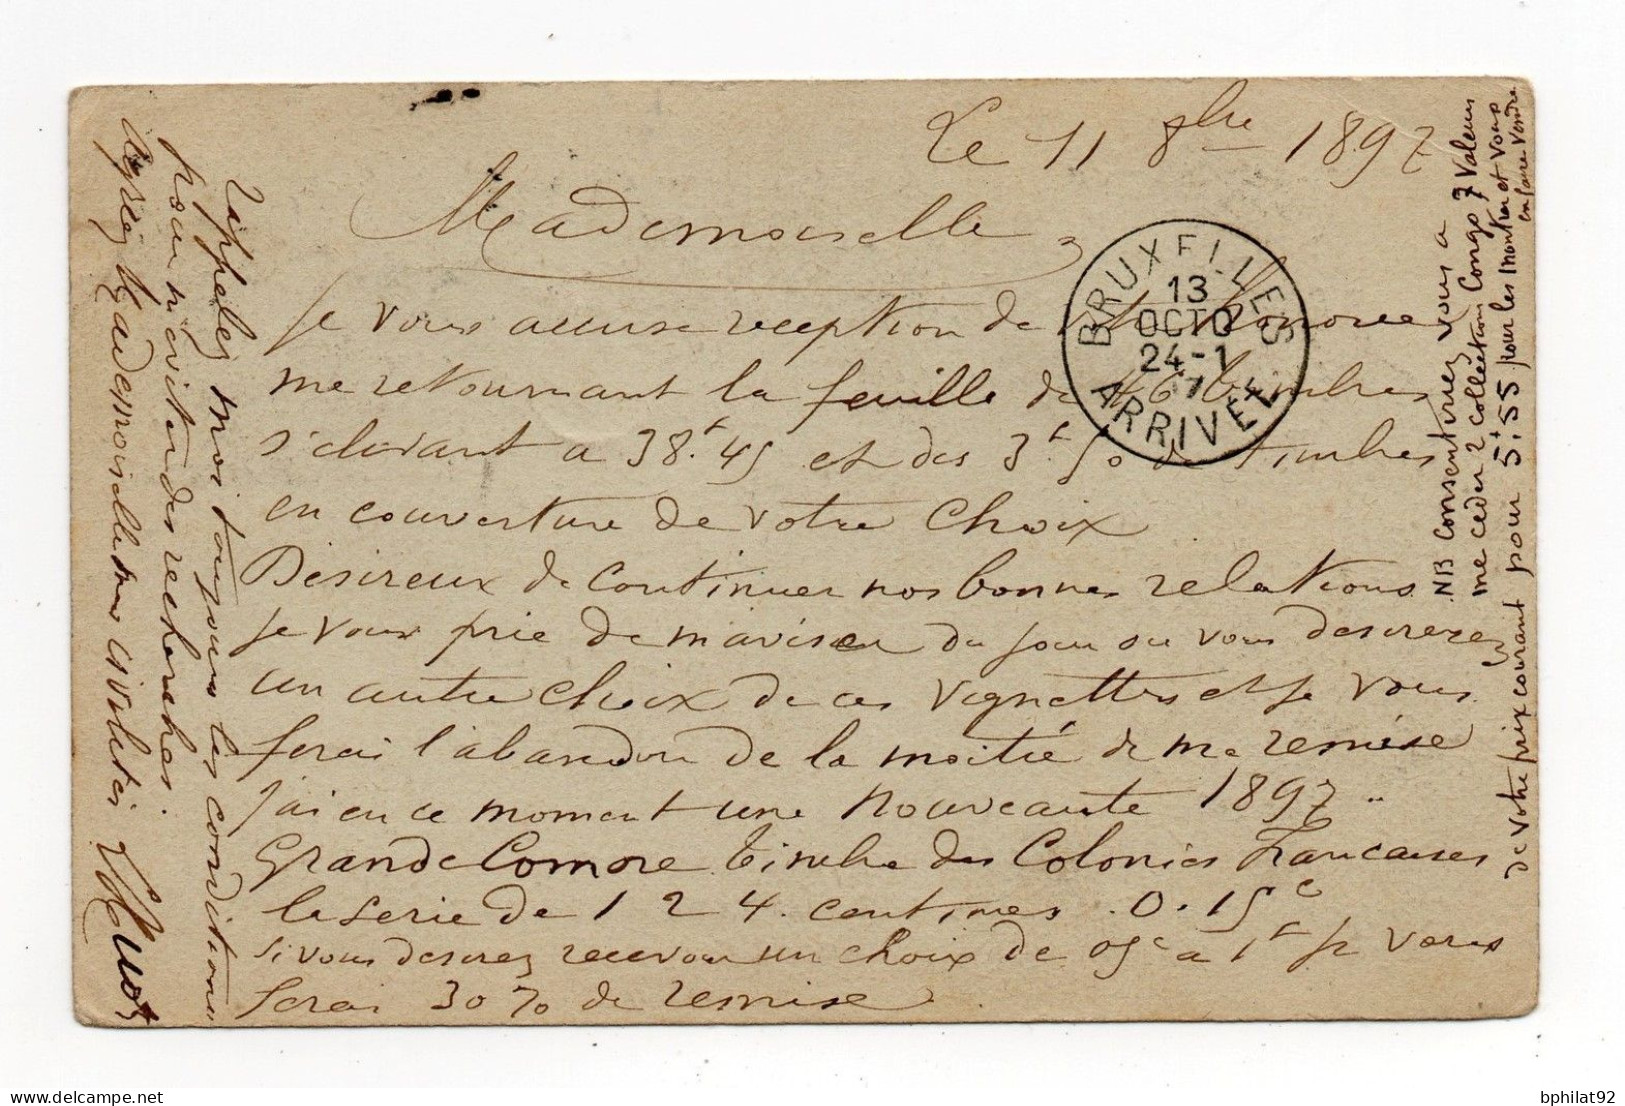 Le 11 8bre 1897
Mademoiselle,
Je vous accuse reception de votre honoree
me retournant la feuille de 46 timbres
s'elevant a 38.f45 et des 3f.50 de timbres
en couverture de votre choix
Desireux de continuer nos bonnes relations
je vous prie de m'aviser du jour ou vous desirerez
un autre choix de ces vignettes et je vous
ferai l'abandon de la moitié de ma remise
j'ai en ce moment une nouveaute 1897 ..
Grande Comore timbre des Colonies Francaises
la serie de 1 2 4. centimes . 0.15c
si vous desirez recevoir un choix de 05c a 1f je vous
ferai 30% de remise.
Rappelez moi toujours les conditions
pour m'eviter des recherches.
Agréez Mademoiselle mes civilités
NB Consentiriez vous a
me ceder 2 collection Congo 7 valeurs
de votre prix courant pour 5f55 pour les montrer et vous
en faire vendre
BRUXELLES
13
OCTO
24-1
ARRIVEE
bphilat92